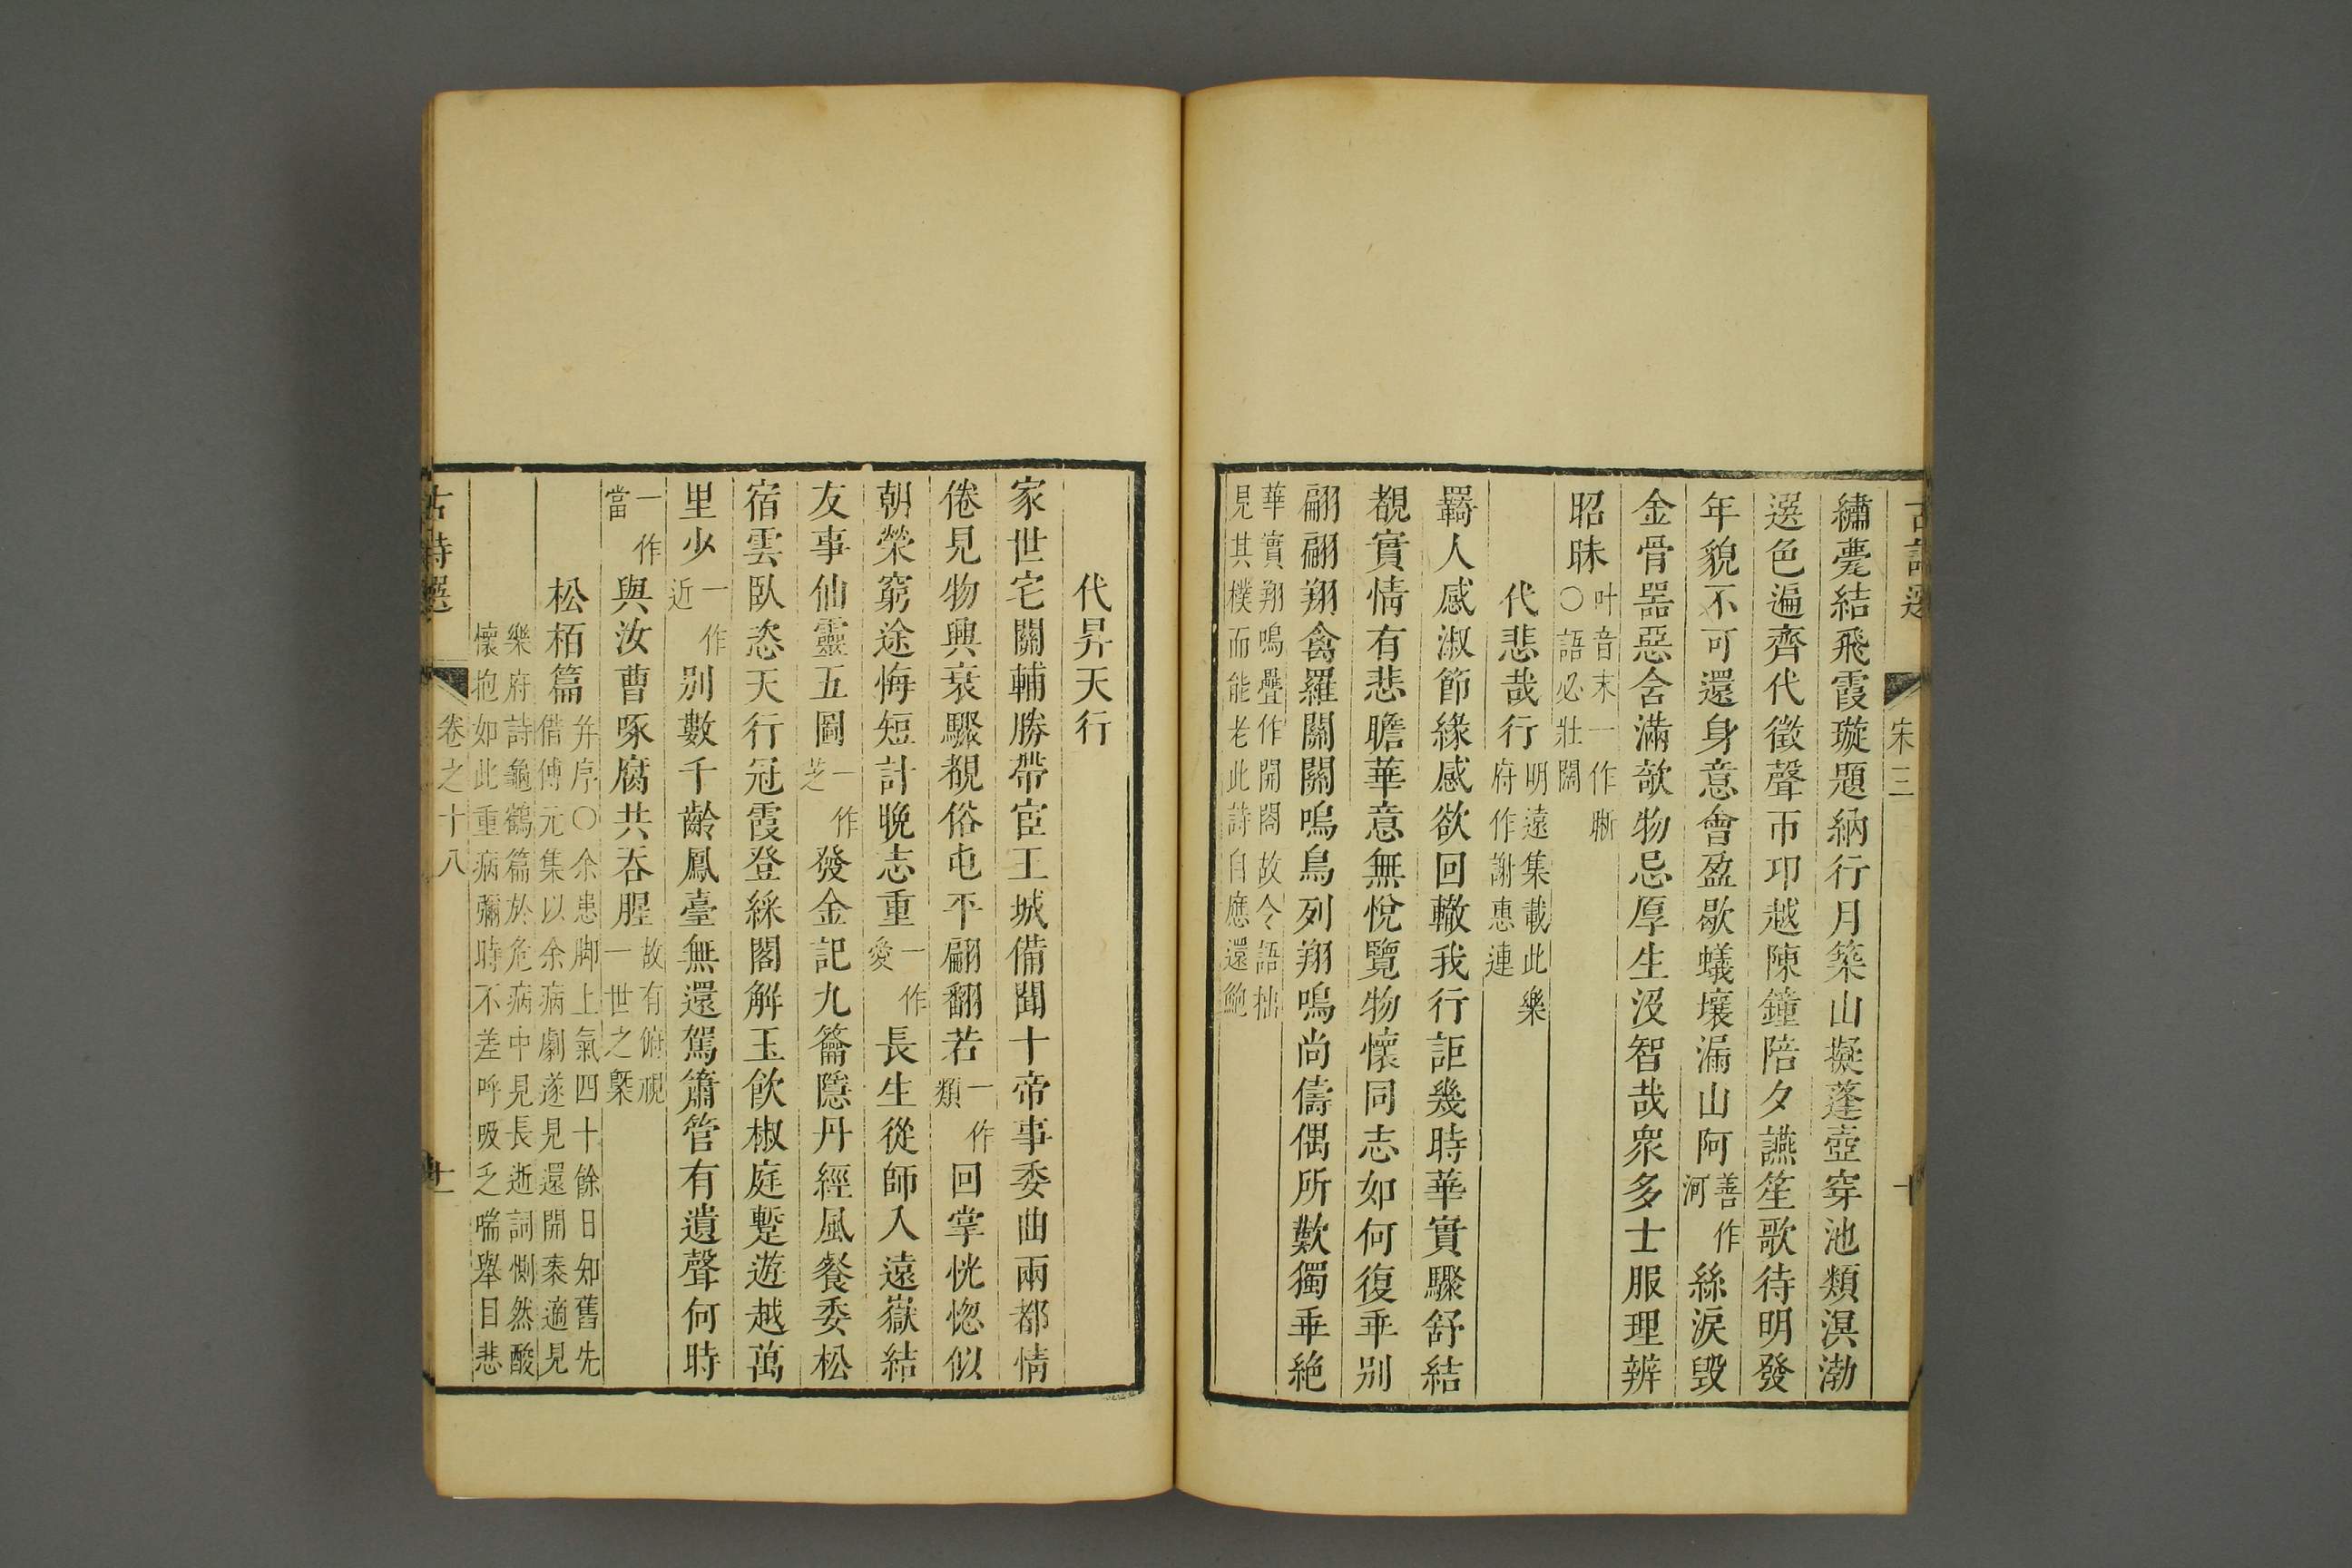 古詩選 宋三 十
繡甍結飛霞璇題納行月築山擬蓬壺穿池類溟渤
選色遍齊代徵聲帀卭越陳鐘陪夕讌笙歌待明發
年貌不可還身意會盈歇蟻壤漏山阿善作河絲淚毀
金骨器惡含滿欹物忌厚生沒智哉衆多士服理辨
昭昧叶音末一作晣○語必壯闊
代悲哉行明遠集載此樂府作謝惠連
羇人感淑節緣感欲回轍我行詎幾時華實驟舒結
覩實情有悲瞻華意無悅覽物懷同志如何復乖別
翩翩翔禽羅關關鳴鳥列翔鳴尚儔偶所歎獨乖絶
華實翔鳴疊作開閤故令語拙
見其樸而能老此詩自應還鮑
代昇天行
家世宅關輔勝帶宦王城備聞十帝事委曲兩都情
倦見物興衰驟覩俗屯平翩翻若一作類回掌恍惚似
朝榮窮途悔短計晚志重一作愛長生從師入遠嶽結
友事仙靈五圖一作芝發金記九籥隱丹經風餐委松
宿雲臥恣天行冠霞登綵閣解玉飲椒庭蹔遊越萬
里少一作近別數千齡鳳臺無還駕簫管有遺聲何時
一作當與汝曹啄腐共吞腥故有俯視一世之槩
松栢篇并序○余患脚上氣四十餘日知舊先
借傅元集以余病劇遂見還開袠適見
樂府詩龜鶴篇於危病中見長逝詞惻然酸
懷抱如此重病彌時不差呼吸乏喘舉目悲
古詩選 卷之十八 十一